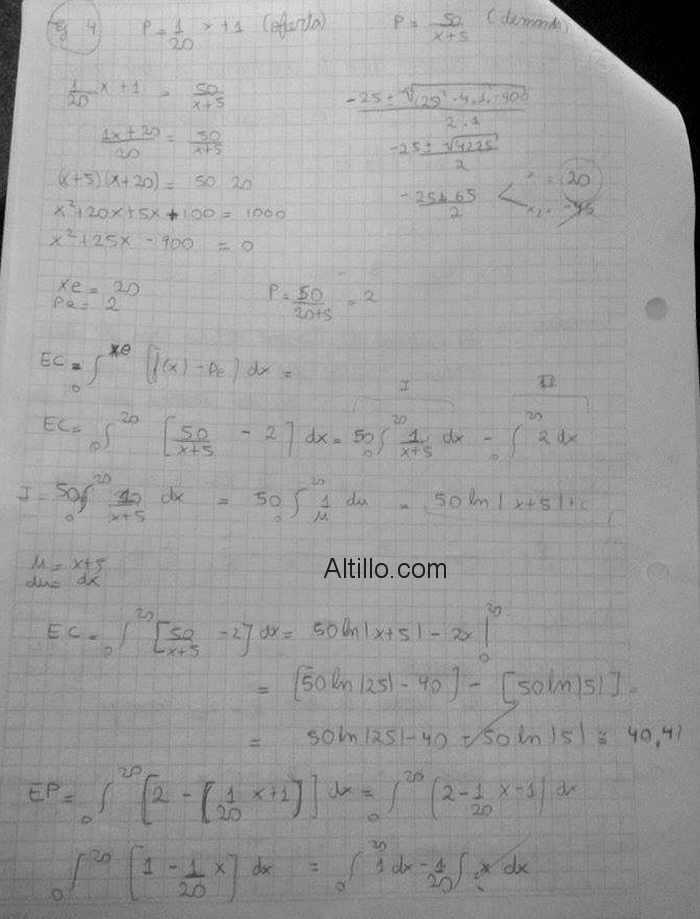 Ej 4 P = 1/20 x + 1 (oferta) P = 50/(x+5) (demanda)
1/20 x + 1 = 50/(x+5)
(1x + 20)/20 = 50/(x+5)
(x+5)(x+20) = 50 20
x² + 20x + 5x + 100 = 1000
x² + 25x - 900 = 0
(-25 ± √(25² - 4.1.-900))/(2.1)
(-25 ± √4225)/2
(-25 ± 65)/2 < x1 = 20
x2 = -45
xe = 20
Pe = 2
P = 50/(20+5) = 2
EC = ₀∫^xe [f(x) - Pe] dx =
I II
EC = ₀∫²⁰ [50/(x+5) - 2] dx = 50 ₀∫²⁰ 1/(x+5) dx - ₀∫²⁰ 2 dx
I = 50 ₀∫²⁰ 1/(x+5) dx = 50 ∫²⁰ 1/u du = 50 ln|x+5| + c
u = x+5
du = dx
Altillo.com
EC = ₀∫²⁰ [50/(x+5) - 2] dx = 50 ln|x+5| - 2x |₀²⁰
= [50 ln|25| - 40] - [50 ln|5|] =
= 50 ln|25| - 40 - 50 ln|5| ≅ 40,47
EP = ₀∫²⁰ [2 - [1/20 x + 1]] dx = ₀∫²⁰ (2 - 1/20 x - 1) dx
₀∫²⁰ [1 - 1/20 x] dx = ₀∫²⁰ 1 dx - 1/20 ∫ x dx